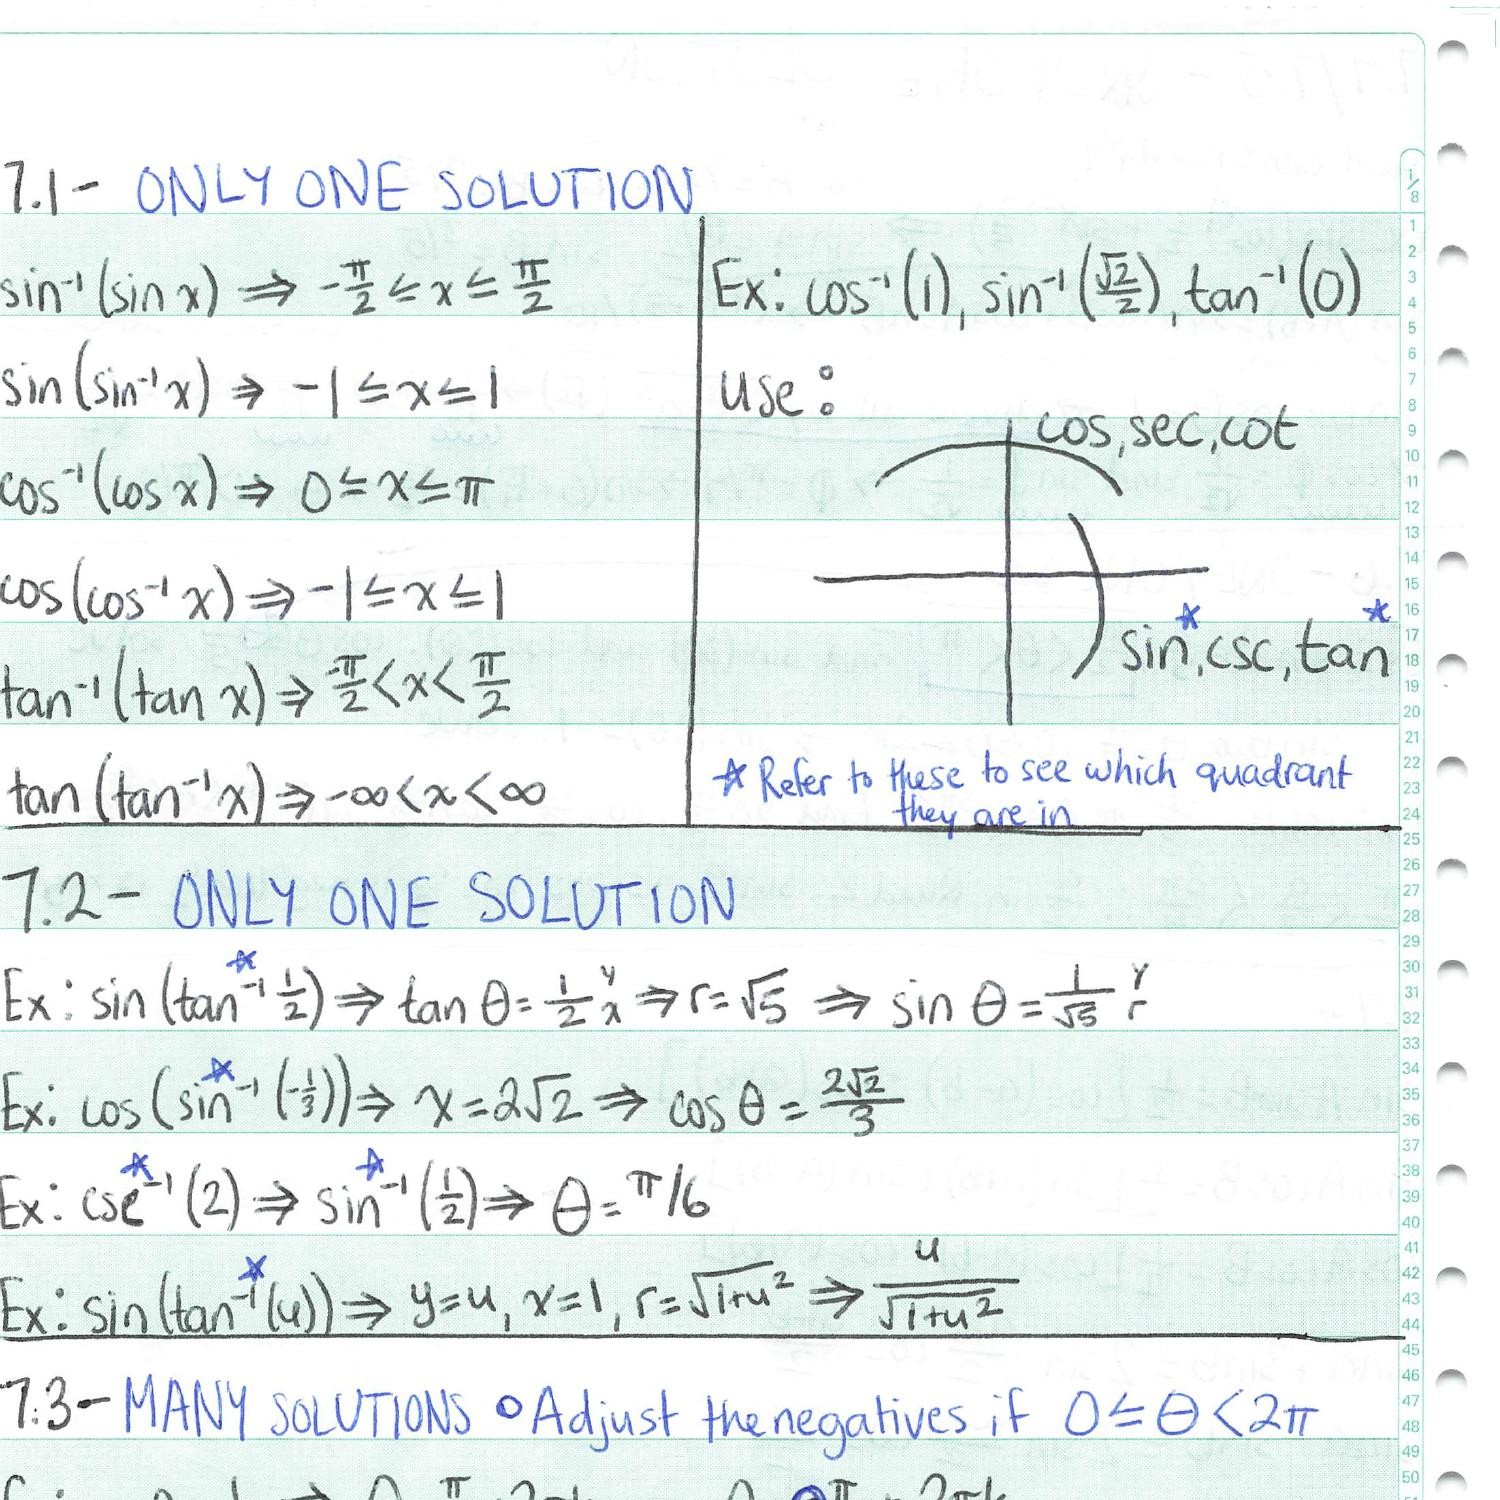 7.1 - ONLY ONE SOLUTION
sin⁻¹(sin x) ⇒ -π/2 ≤ x ≤ π/2
sin(sin⁻¹x) ⇒ -1 ≤ x ≤ 1
cos⁻¹(cos x) ⇒ 0 ≤ x ≤ π
cos(cos⁻¹ x) ⇒ -1 ≤ x ≤ 1
tan⁻¹(tan x) ⇒ -π/2 < x < π/2
tan(tan⁻¹x) ⇒ -∞ < x < ∞
Ex: cos⁻¹(1), sin⁻¹(√2/2), tan⁻¹(0)
use:
cos, sec, cot
sin*, csc, tan*
* Refer to these to see which quadrant
they are in
7.2 - ONLY ONE SOLUTION
Ex: sin(tan*⁻¹ 1/2) ⇒ tan θ = 1/2 y/x ⇒ r = √5 ⇒ sin θ = 1/√5 y/r
Ex: cos(sin*⁻¹(-1/3)) ⇒ x = 2√2 ⇒ cos θ = 2√2/3
Ex: csc*⁻¹(2) ⇒ sin*⁻¹(1/2) ⇒ θ = π/6
Ex: sin(tan*⁻¹(u)) ⇒ y = u, x = 1, r = √1+u² ⇒ u/√1+u²
7.3 - MANY SOLUTIONS ∘ Adjust the negatives if 0 ≤ θ < 2π
1/8
1
2
3
4
5
6
7
8
9
10
11
12
13
14
15
16
17
18
19
20
21
22
23
24
25
26
27
28
29
30
31
32
33
34
35
36
37
38
39
40
41
42
43
44
45
46
47
48
49
50